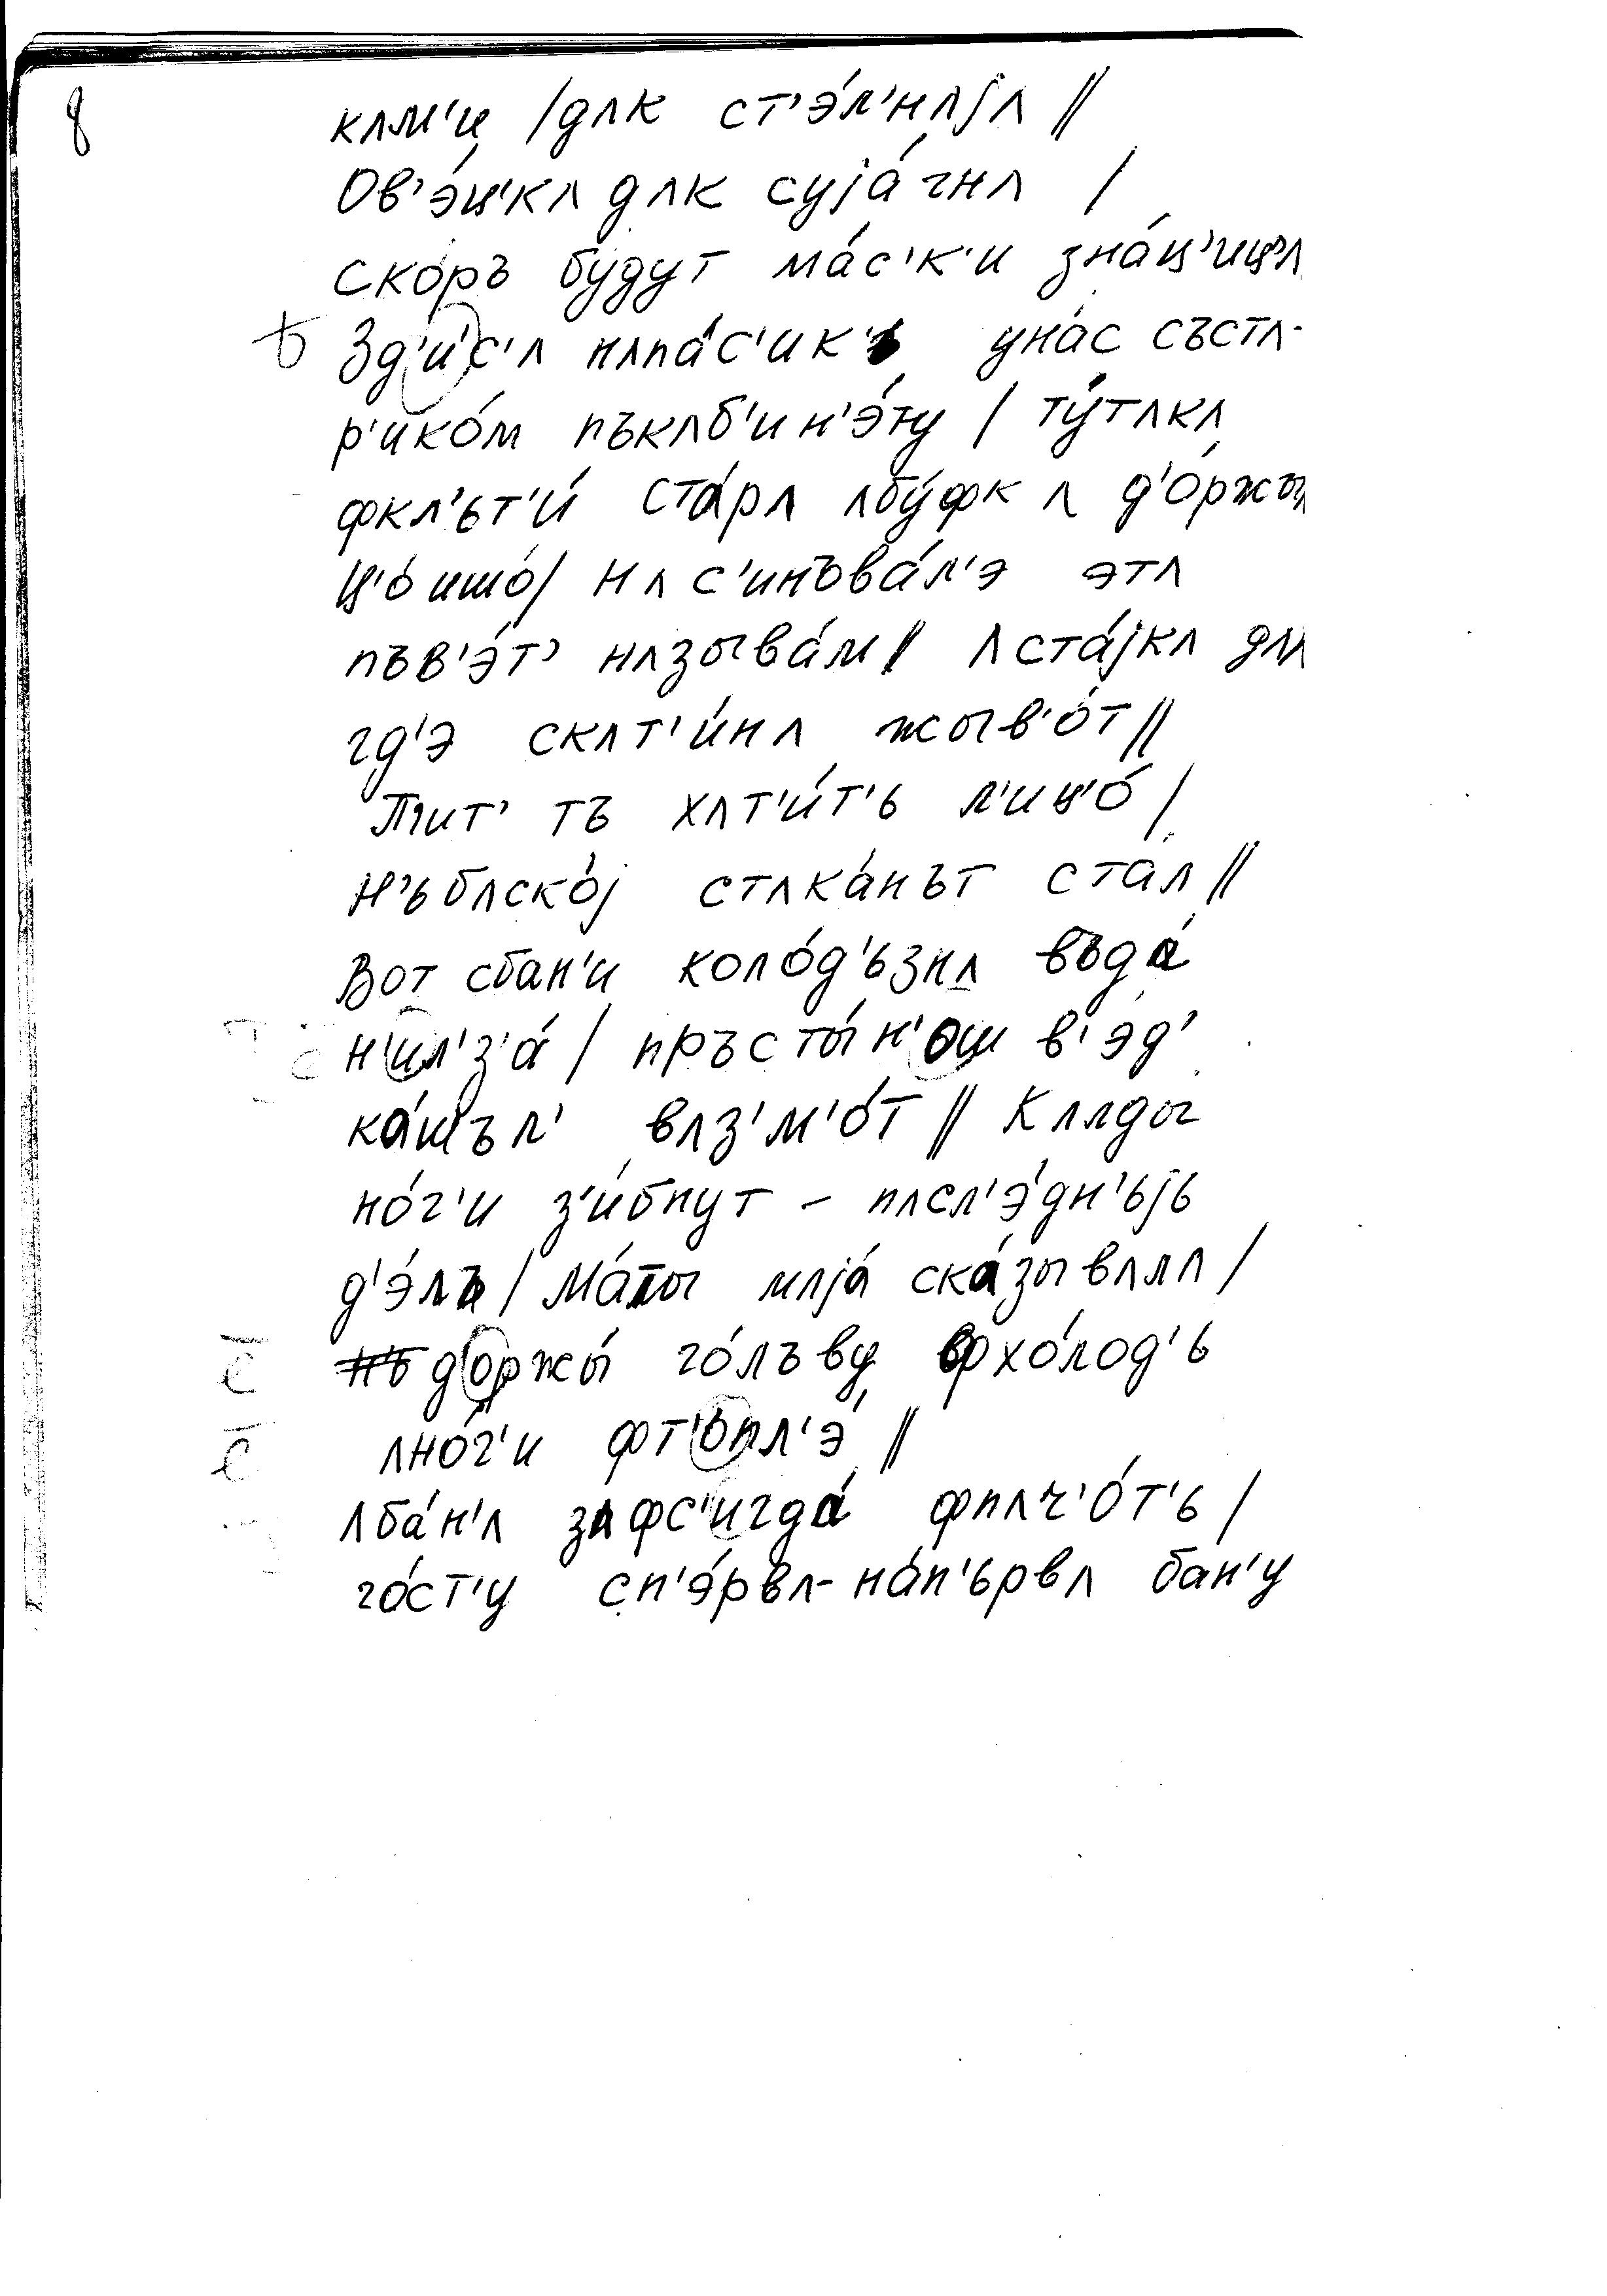 8
клм'и / длк ст'э́л'нлjл //
Ов'э́ц'кл длк суjа́гнл /
ско́ръ бу́дут ма́с'к'и зна́ц'иц'л
Зд'и́с'л нлпа́с'ик'ъ уна́с състл-
р'ико́м пъклб'ин'э́ту / ту́тлкл
фкл'ът'и́ ста́рл лбу́фк л д'о́ржы
ц'о́ ишо́ / Нл с'инъва́л'э этл
пъв'э́т' нлзыва́м // Лста́jкл длл
гд'э склт'и́нл жыв'о́т //
Пит' тъ хлт'и́т'ь л'иц'о́ /
Н'ъблско́j стлка́нът стал //
Вот сбан'и коло́д'ьзнл въда́
н'ил'з'а́ / пръсты́н'ош в'эд'
ка́шъл' влз'м'о́т // Кллды
но́г'и з'и́бнут – плсл'э́дн'ьjь
д'э́лъ / Ма́ты млjа́ ска́зывллл /
доржы́ го́лъву фхо́лод'ь
лно́г'и фт'опл'э́ //
Лба́н'л злфс'игда́ фплч'о́т'ь /
го́ст'у сп'э́рвл-на́п'ьрвл бан'у